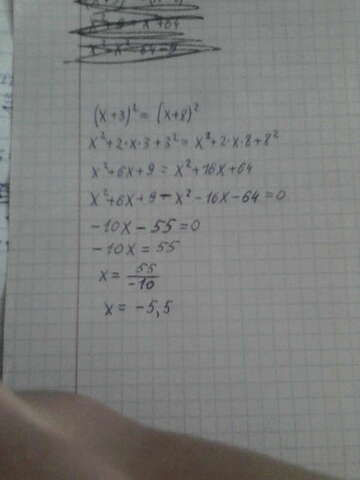 (x+3)² = (x+8)²
x²+2·x·3+3² = x²+2·x·8+8²
x²+6x+9 = x²+16x+64
x²+6x+9-x²-16x-64=0
-10x-55=0
-10x=55
x=55/-10
x=-5,5